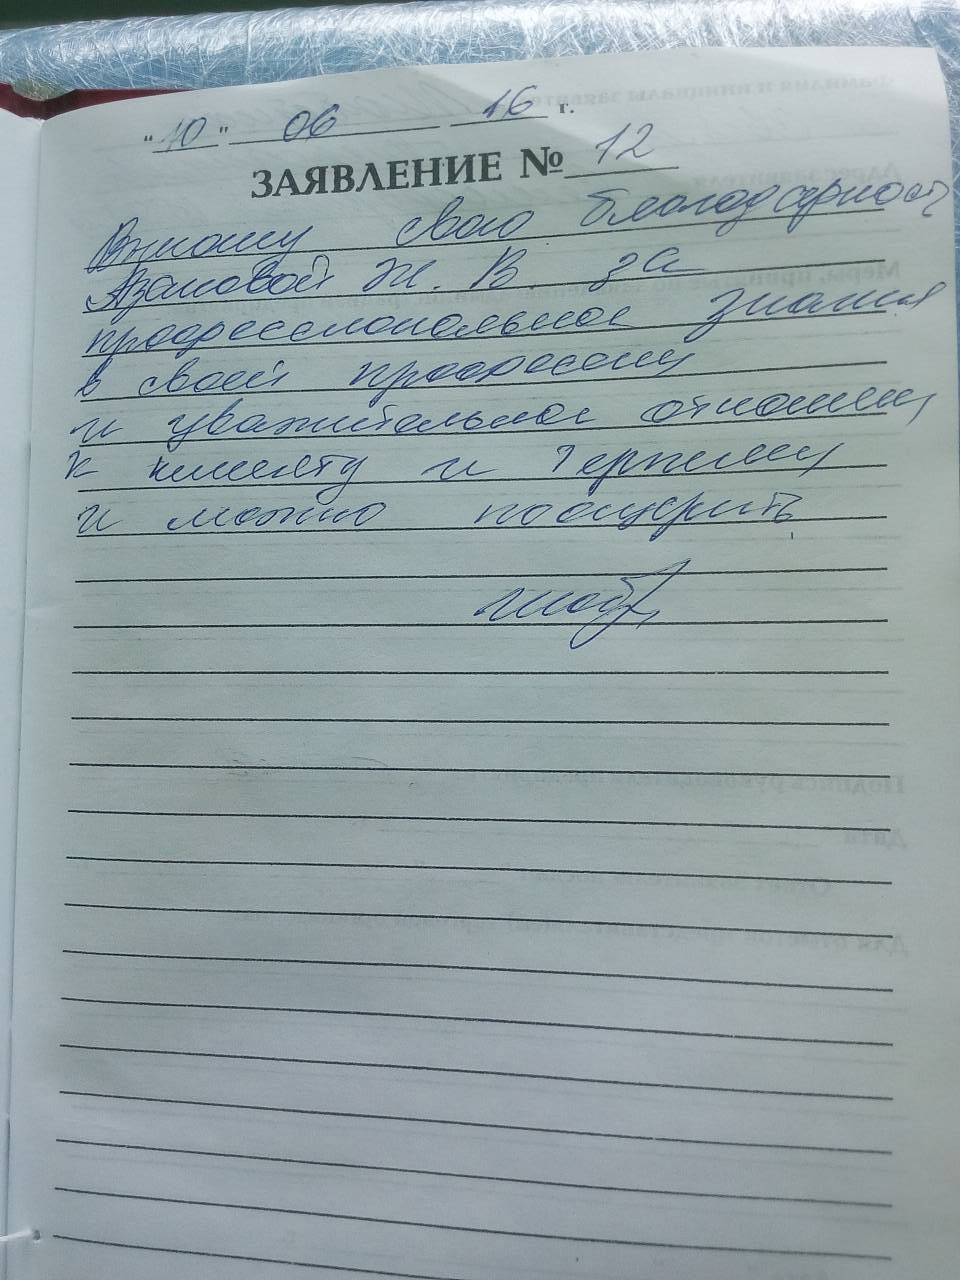 "10" 06 16 г.
ЗАЯВЛЕНИЕ № 12
Выношу свою благодарность
Азаковой Ж. В за
профессиональное знания
в своей професси
и уважительное отношении
к клиенту и терпению
и можно поощерить